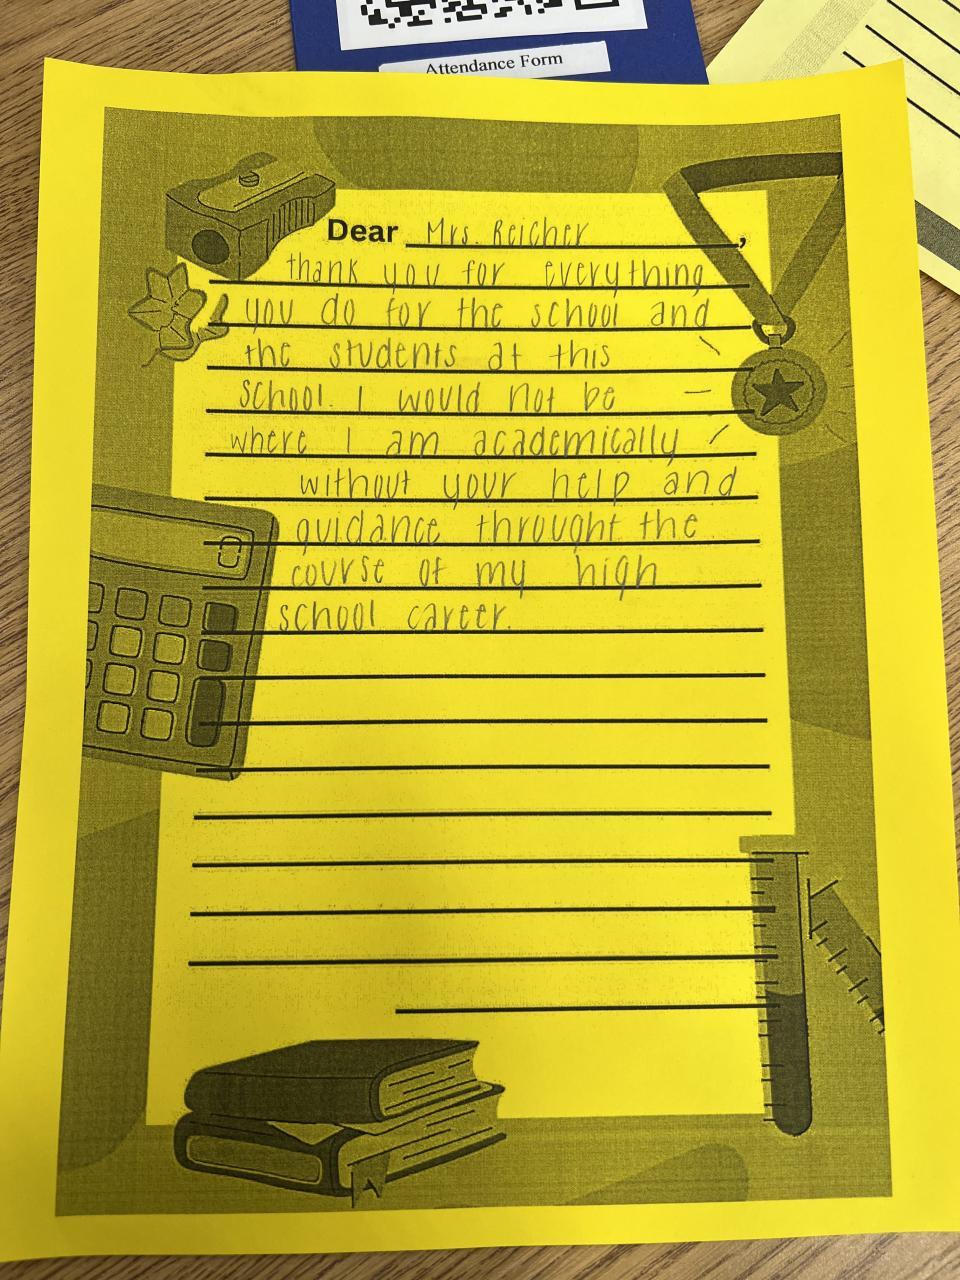 Attendance Form
Dear Mrs. Reicher,
thank you for everything
you do for the school and
the students at this
school. I would not be
where I am academically
without your help and
guidance throught the
course of my high
school career.
0
A